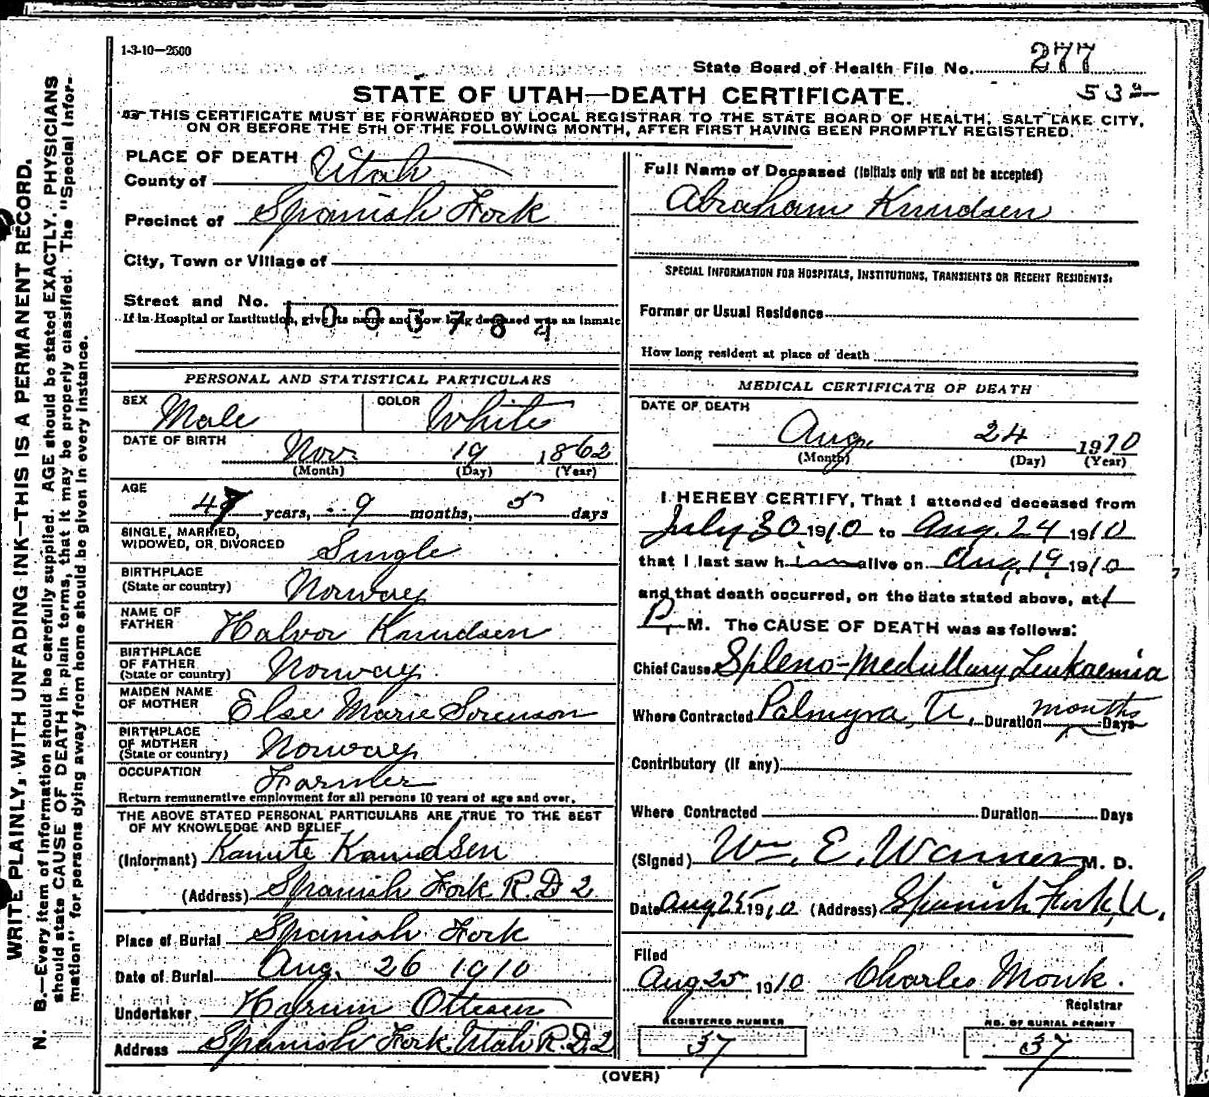 1-3-10—2500
State Board of Health File No. 277
STATE OF UTAH—DEATH CERTIFICATE.
THIS CERTIFICATE MUST BE FORWARDED BY LOCAL REGISTRAR TO THE STATE BOARD OF HEALTH, SALT LAKE CITY,
ON OR BEFORE THE 5TH OF THE FOLLOWING MONTH, AFTER FIRST HAVING BEEN PROMPTLY REGISTERED.
WRITE PLAINLY, WITH UNFADING INK—THIS IS A PERMANENT RECORD.
N. B.—Every item of information should be carefully supplied. AGE should be stated EXACTLY. PHYSICIANS
should state CAUSE OF DEATH in plain terms, that it may be properly classified. The "Special Infor-
mation" for persons dying away from home should be given in every instance.
PLACE OF DEATH
County of Utah
Precinct of Spanish Fork
City, Town or Village of
Street and No.
If in Hospital or Institution, give its name and how long deceased was an inmate
1003784
PERSONAL AND STATISTICAL PARTICULARS
SEX Male COLOR White
DATE OF BIRTH Nov 19 1862
(Month) (Day) (Year)
AGE
47 years, 9 months, 5 days
SINGLE, MARRIED,
WIDOWED, OR DIVORCED Single
BIRTHPLACE
(State or country) Norway
NAME OF
FATHER Halvor Knudsen
BIRTHPLACE
OF FATHER
(State or country) Norway
MAIDEN NAME
OF MOTHER Else Marie Sorenson
BIRTHPLACE
OF MOTHER
(State or country) Norway
OCCUPATION Farmer
Return remunerative employment for all persons 10 years of age and over.
THE ABOVE STATED PERSONAL PARTICULARS ARE TRUE TO THE BEST
OF MY KNOWLEDGE AND BELIEF
(Informant) Kanute Knudsen
(Address) Spanish Fork R.D 2
Place of Burial Spanish Fork
Date of Burial Aug. 26 1910
Undertaker Hyrum Ottesen
Address Spanish Fork, Utah R.D. 2
Full Name of Deceased (Initials only will not be accepted)
Abraham Knudsen
SPECIAL INFORMATION FOR HOSPITALS, INSTITUTIONS, TRANSIENTS OR RECENT RESIDENTS:
Former or Usual Residence
How long resident at place of death
MEDICAL CERTIFICATE OF DEATH
DATE OF DEATH
Aug. 24 1910
(Month) (Day) (Year)
I HEREBY CERTIFY, That I attended deceased from
July 30 1910 to Aug. 24 1910
that I last saw him alive on Aug. 19 1910
and that death occurred, on the date stated above, at 1
P. M. The CAUSE OF DEATH was as follows:
Chief Cause Spleno-Medullary Leukaemia
Where Contracted Palmyra, U. Duration months Days
Contributory (if any)
Where Contracted Duration Days
(Signed) Wm. E. Warner M. D.
Date Aug 25 1910 (Address) Spanish Fork, U.
Filed
Aug 25 1910 Charles Monk.
Registrar
REGISTERED NUMBER NO. OF BURIAL PERMIT
37 37
(OVER)